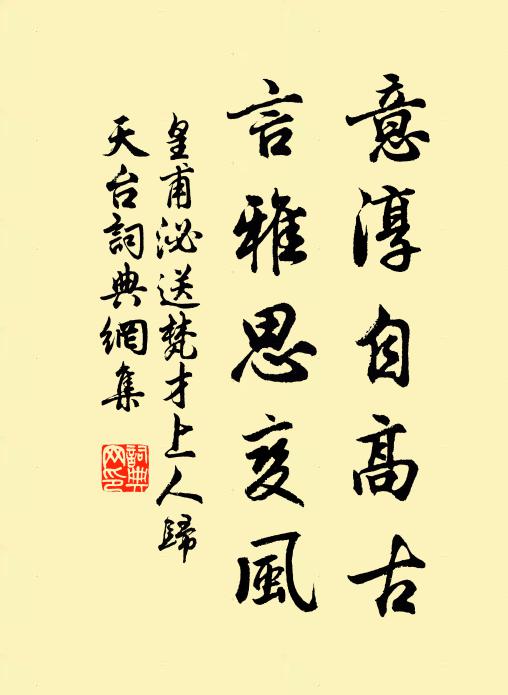 意淳自高古
言雅思变風
皇甫泌送梵才上人歸
天台詞典網集
詞典网印